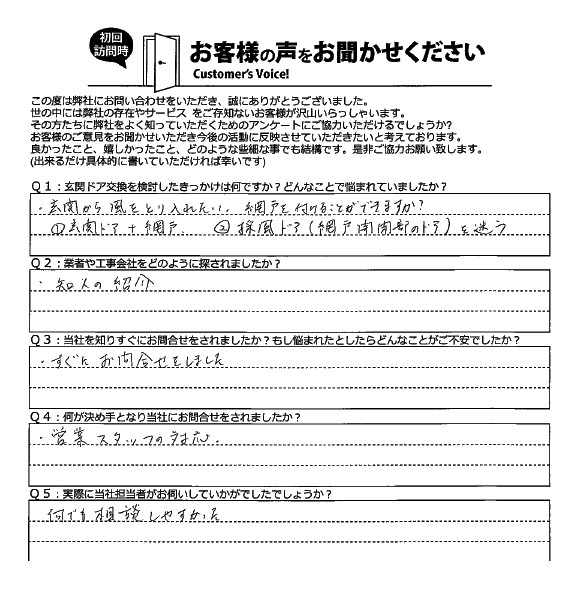 初回
訪問時
お客様の声をお聞かせください
Customer's Voice!
この度は弊社にお問い合わせをいただき、誠にありがとうございました。
世の中には弊社の存在やサービス をご存知ないお客様が沢山いらっしゃいます。
その方たちに弊社をよく知っていただくためのアンケートにご協力いただけるでしょうか?
お客様のご意見をお聞かせいただき今後の活動に反映させていただきたいと考えております。
良かったこと、嬉しかったこと、どのような些細な事でも結構です。是非ご協力お願い致します。
(出来るだけ具体的に書いていただければ幸いです)
Q1:玄関ドア交換を検討したきっかけは何ですか?どんなことで悩まれていましたか?
・玄関から風をとり入れたい。網戸を付けることができますか?
①玄関ドア+網戸 ②採風ドア(網戸開閉部のドア)と迷う
Q2:業者や工事会社をどのように探されましたか?
・知人の紹介
Q3:当社を知りすぐにお問合せをされましたか?もし悩まれたとしたらどんなことがご不安でしたか?
・すぐにお問合せをしました
Q4:何が決め手となり当社にお問合せをされましたか?
・営業スタッフの対応。
Q5:実際に当社担当者がお伺いしていかがでしたでしょうか?
何でも相談しやすかった